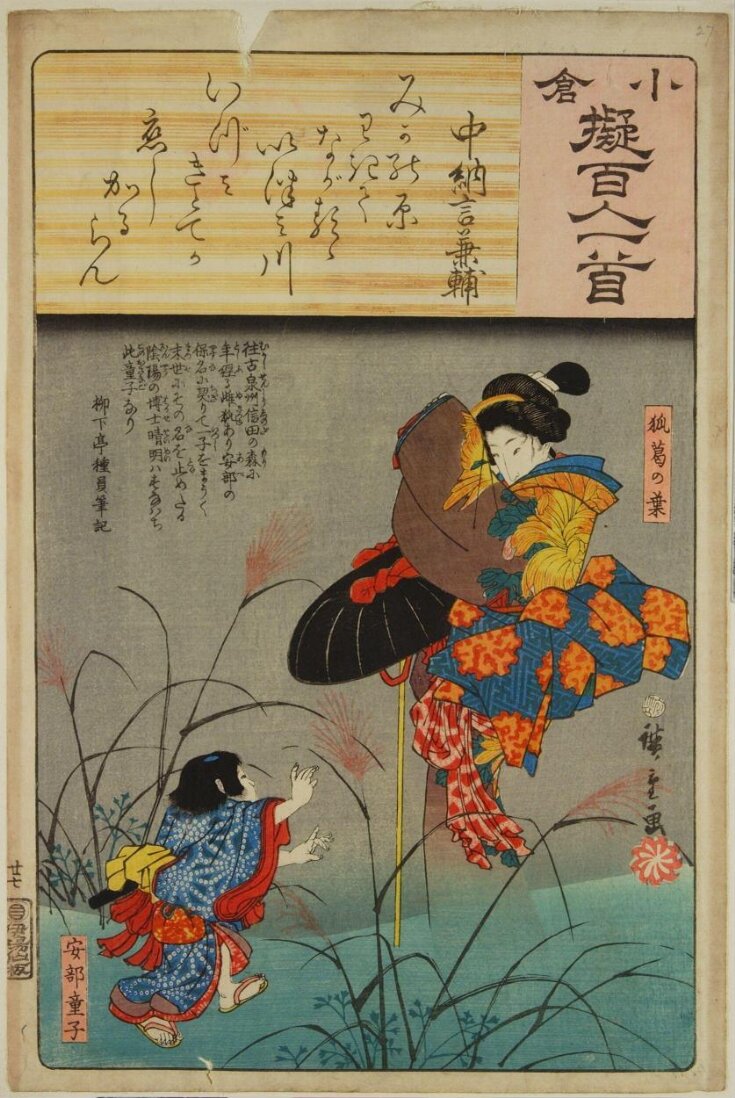 小倉
擬百人一首
中納言兼輔
みかの原
わきて
ながるゝ
いづみ川
いつ見
きとてか
恋し
かる
らん
往古泉州信田の森に
年経る雌狐あり安部の
保名に契りて一子をまうく
末世にその名を止めたる
陰陽の博士晴明ハすなはち
此童子なり
柳下亭種員筆記
狐葛の葉
廣重画
安部童子
廿七
伊場仙板
27